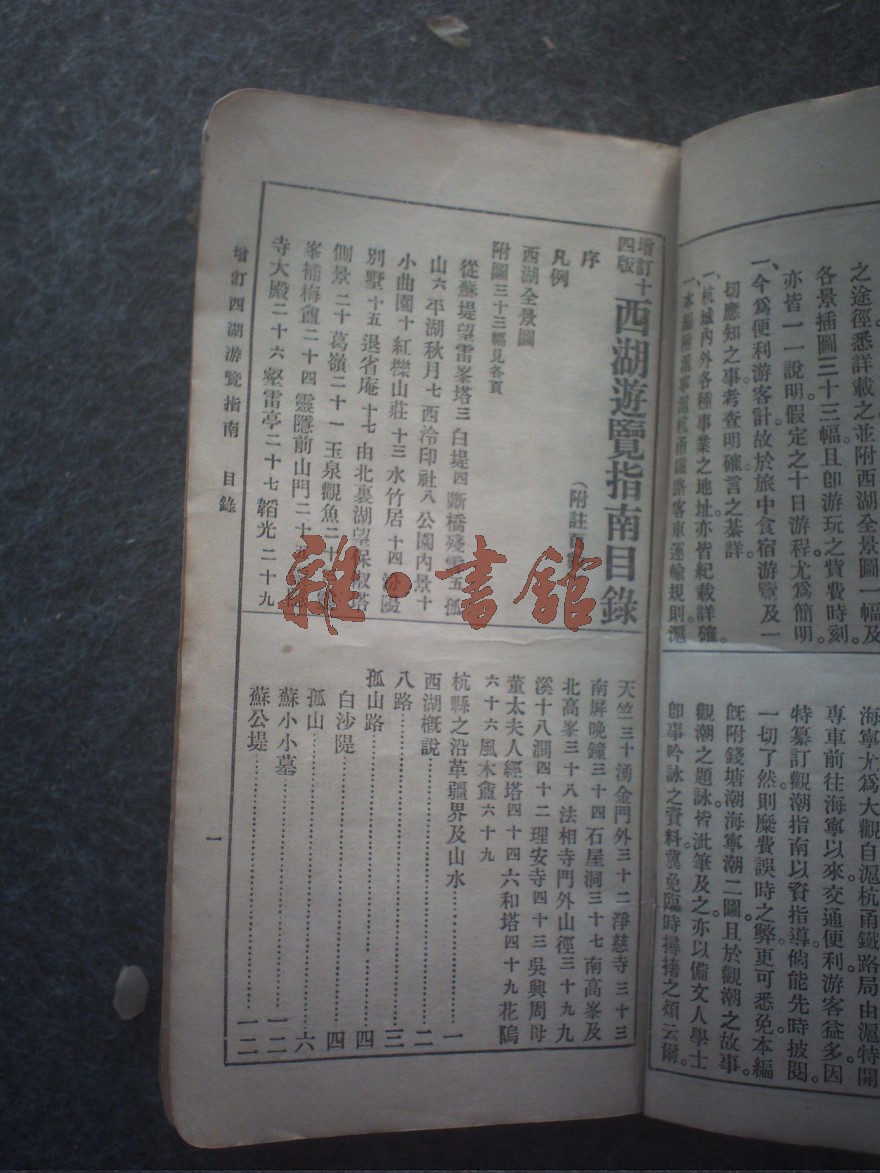 之途徑悉詳載之並附西湖全景圖一幅及
各景插圖三十三幅且卽游玩之貲費時刻
亦皆一一說明假定之十日游程尤爲簡明
一、今爲便利游客計故於旅中食宿游覽及一
切應知之事考查明確言之綦詳
一、杭城內外各種事業之地址亦皆紀載詳確
一、本編附滬甯滬杭甬鐵路客車運輸規則滬
海寧尤爲大觀自滬杭甬鐵路局由滬特開
專車前往海寧以來交通便利游客益多因
特纂訂觀潮指南以資指導倘能先時披閱
一切了然則糜費誤時之弊更可悉免本編
旣附錢塘潮海寧潮二圖且於觀潮之故事
觀潮之題詠皆泚筆及之亦以備文人學士
卽事吟詠之資料冀免臨時撏撦之煩云爾
增訂十四版
西湖遊覽指南目錄
(附註頁
序
凡例
西湖全景圖
附圖三十三幅見各頁
從蘇堤望雷峯塔三 白堤四 斷橋殘雪五 孤
山六 平湖秋月七 西泠印社八 公園內景十
小曲園十 紅櫟山莊十三 水竹居十四 汾陽
別墅十五 退省庵十七 由北裏湖望保俶塔
側景二十 葛嶺二十一 玉泉觀魚二十
峯補梅盦二十四 靈隱前山門二十五
寺大殿二十六 壑雷亭二十七 韜光二十九
天竺三十 湧金門外三十二 淨慈寺三十三
南屏晚鐘三十四 石屋洞三十七 南高峯及
北高峯三十八 法相寺門外山徑三十九 九
溪十八澗四十二 理安寺四十三 吳興周母
董太夫人經塔四十四 六和塔四十九 花塢
六十六 風木盦六十九
杭縣之沿革疆界及山水……一
西湖概說……二
八路……三
孤山路……四
白沙隄……四
孤山……六
蘇小小墓……一二
蘇公堤……一二
增訂西湖游覽指南 目錄
一
雜·書館